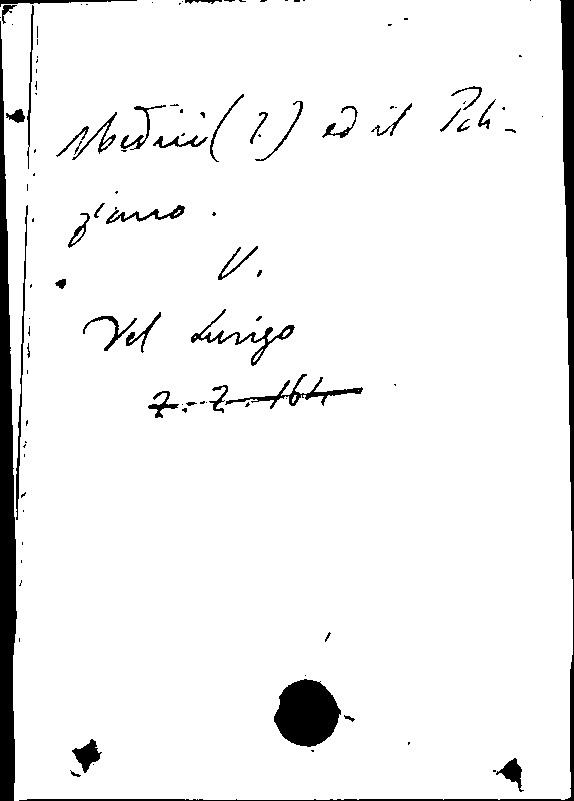 Medici (?) ed il Poli-
ziano.
V.
Vel Lurigo
Z. Z. 164